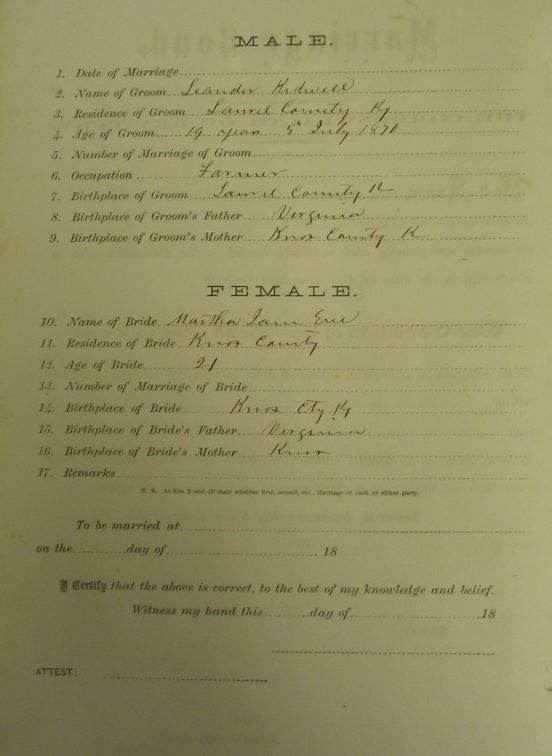 MALE.
1. Date of Marriage
2. Name of Groom Leander Kidwell
3. Residence of Groom Laurel County Ky
4. Age of Groom 19 years 5th July 1870
5. Number of Marriage of Groom
6. Occupation Farmer
7. Birthplace of Groom Laurel County K
8. Birthplace of Groom's Father Virginia
9. Birthplace of Groom's Mother Knox County K
FEMALE.
10. Name of Bride Martha Jane
11. Residence of Bride Knox County
12. Age of Bride 21
13. Number of Marriage of Bride
14. Birthplace of Bride Knox Cty Ky
15. Birthplace of Bride's Father Virginia
16. Birthplace of Bride's Mother Knox
17. Remarks
N. B. At Nos. 5 and 13 state whether first, second, etc., Marriage of each or either party.
To be married at
on the day of , 18
I Certify that the above is correct, to the best of my knowledge and belief.
Witness my hand this day of 18
ATTEST: